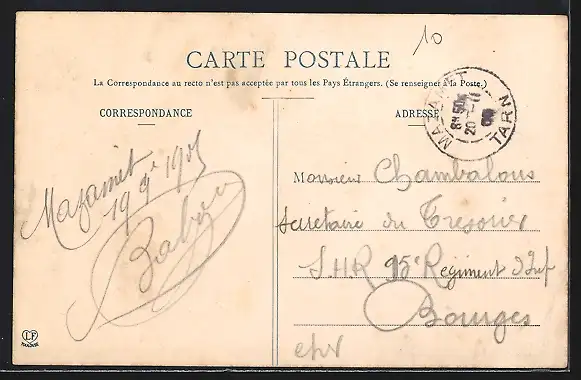 10
CARTE POSTALE
La Correspondance au recto n'est pas acceptée par tous les Pays Étrangers. (Se renseigner à la Poste.)
MAZAMET
TARN
CORRESPONDANCE
ADRESSE
Mazamet
Monsieur Chambalous
Secretaire du Tresorier
95e Regiment d'Inf
Bourges
LF
TOULOUSE